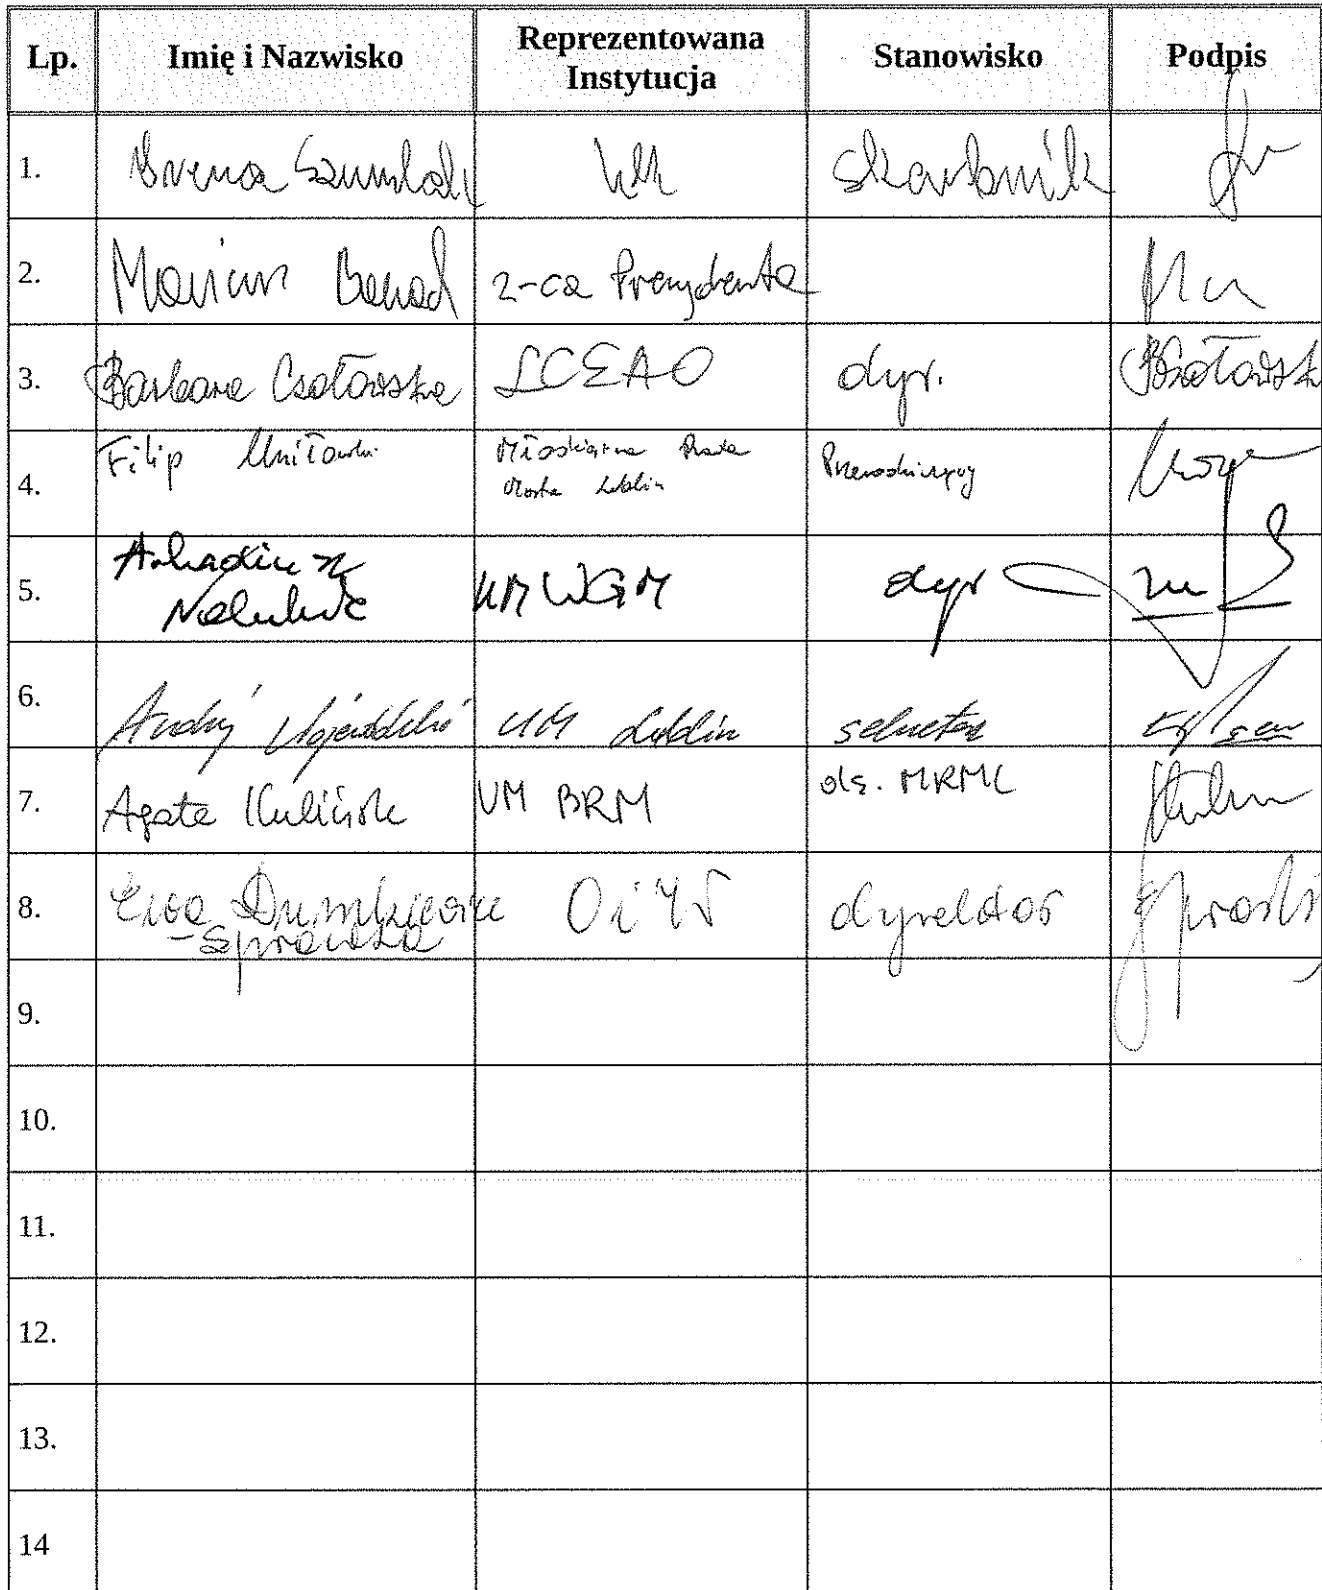 Lp. Imię i Nazwisko Reprezentowana Instytucja Stanowisko Podpis
1. Irena Szumlak UM skarbnik
2. Mariusz Banach z-ca Prezydenta
3. Barbara Czołowska LCEAO dyr. BCzołowska
4. Filip Młodzieżowa Rada Miasta Lublin Przewodniczący
5. Arkadiusz Nahuluk UM WGM dyr
6. Andrzej Wojewódzki UM Lublin sekretarz
7. Agata Kulińska UM BRM ds. MRML
8. Ewa Dumkiewicz -Sprawka OiW dyrektor
9.
10.
11.
12.
13.
14